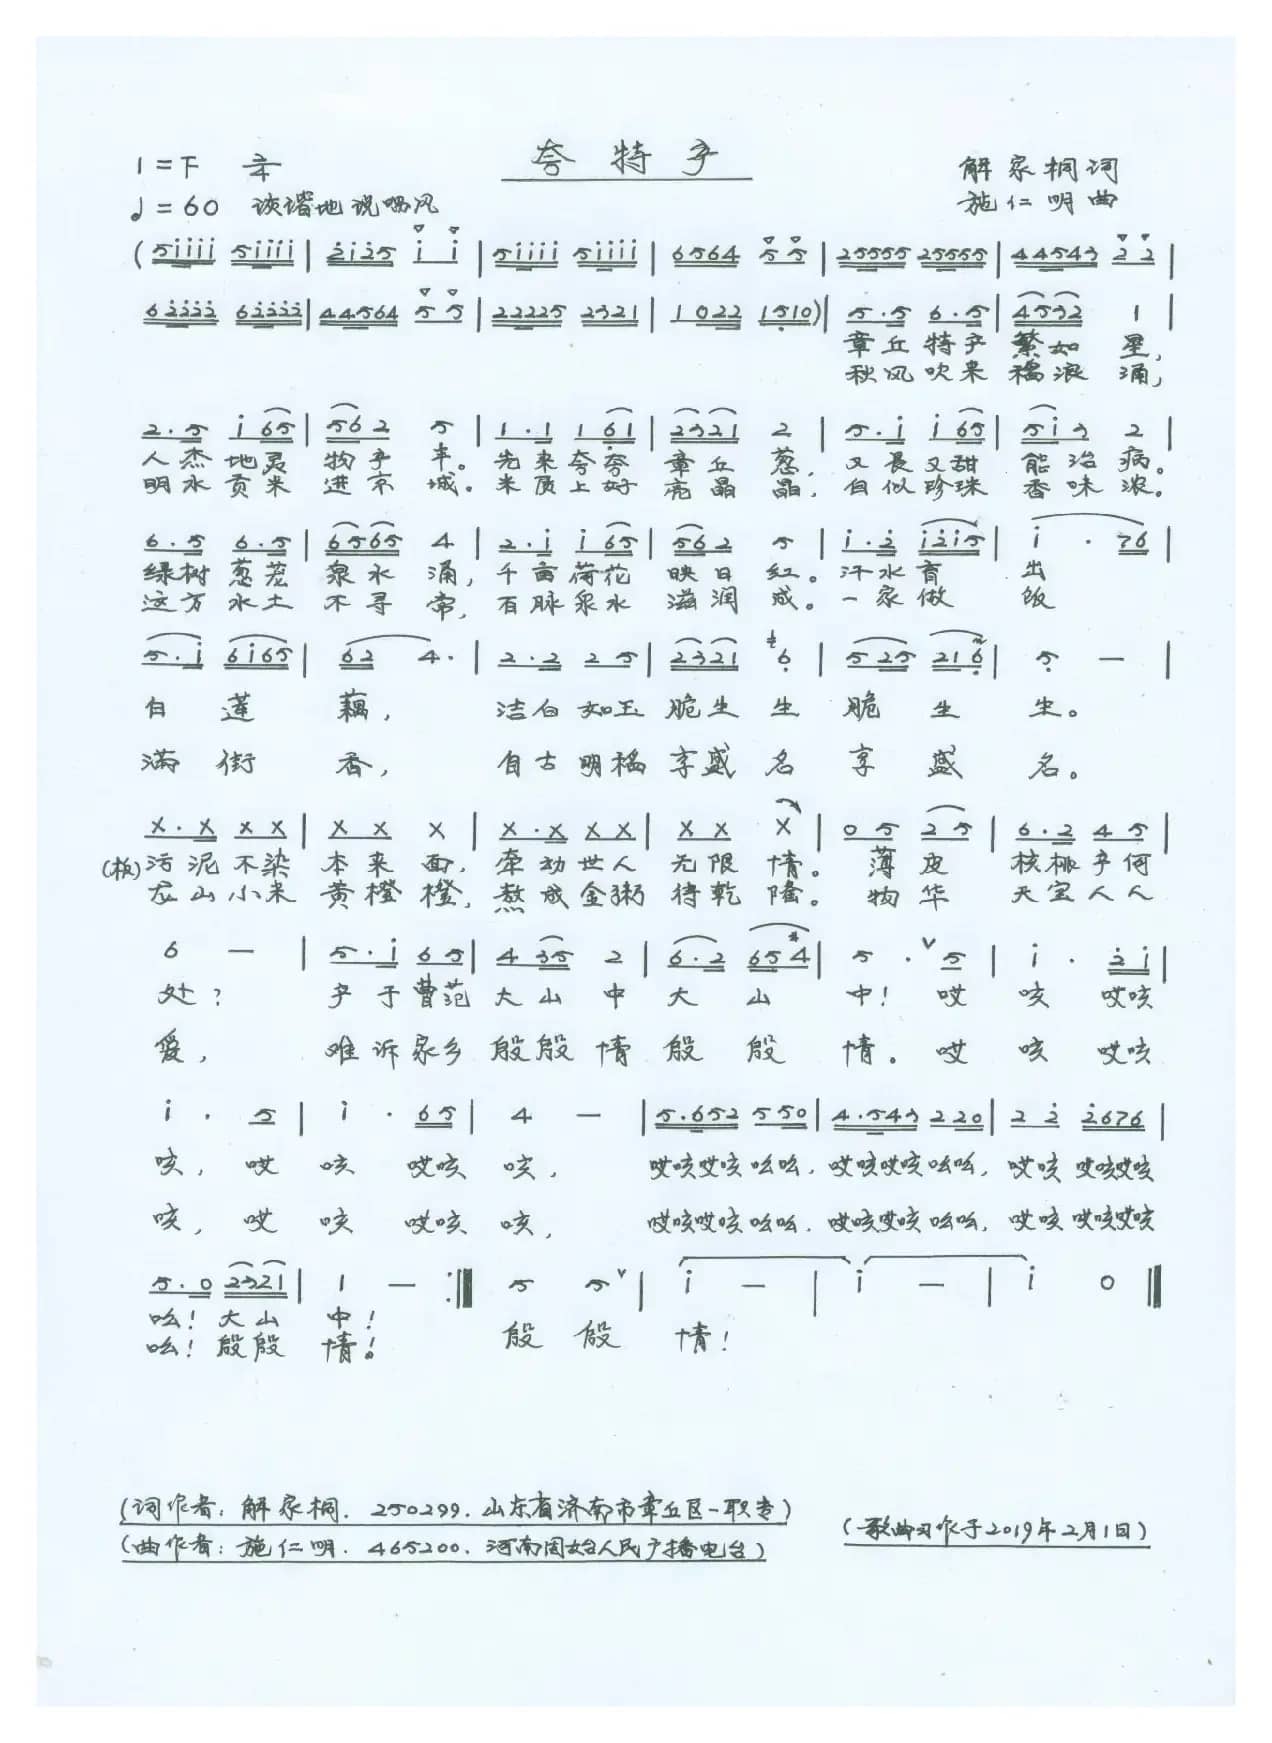 夸特产
1=F 2/4
解家桐词
♩=60 诙谐地说唱风
施仁明曲
(5iiii 5iiii | 2i25 i i | 5iiii 5iiii | 6564 5 5 | 25555 25555 | 44543 2 2 |
62222 62222 | 44564 5 5 | 22225 2321 | 1022 1510) | 5·5 6·5 | 4532 1 |
章丘特产 繁如 星,
秋风吹来 稻浪 涌,
2·5 i65 | 562 5 | 1·1 161 | 2321 2 | 5·i i65 | 5i3 2 |
人杰地灵 物产 丰。先来夸夸 章丘 葱,又长又甜 能治 病。
明水贡米 进京 城。米质上好 亮晶 晶,白似珍珠 香味 浓。
6·5 6·5 | 6565 4 | 2·i i65 | 562 5 | i·2 i2i5 | i · 76 |
绿树葱茏 泉水 涌,千亩荷花 映日 红。汗水育 出
这方水土 不寻 常,百脉泉水 滋润 成。一家做 饭
5·i 6i65 | 62 4· | 2·2 25 | 2321 6 | 525 216 | 5 — |
白莲 藕, 洁白如玉 脆生 生 脆生 生。
满街 香, 自古明稻 享盛 名 享盛 名。
X·X XX | X X X | X·X XX | X X X | 05 25 | 6·2 45 |
(板)污泥不染 本来 面,牵动世人 无限 情。薄皮 核桃产何
龙山小米 黄橙 橙,熬成金粥 待乾 隆。物华 天宝人人
6 — | 5·i 65 | 4 35 2 | 6·2 65#4 | 5 · ∨5 | i · 2i |
处? 产于曹范 大山 中 大山 中! 哎 咳 哎咳
爱, 难诉家乡 殷殷 情 殷殷 情。哎 咳 哎咳
i · 5 | i · 65 | 4 — | 5·652 550 | 4·543 220 | 2 2 2676 |
咳,哎 咳 哎咳 咳, 哎咳哎咳 吆吆,哎咳哎咳 吆吆,哎咳 哎咳哎咳
咳,哎 咳 哎咳 咳, 哎咳哎咳 吆吆,哎咳哎咳 吆吆,哎咳 哎咳哎咳
5·0 2321 | 1 — :‖ 5 5∨ | i — | i — | i 0 ‖
吆!大山 中!
吆!殷殷 情。 殷 殷 情!
(词作者:解家桐. 250299. 山东省济南市章丘区一职专)
(曲作者:施仁明. 465200. 河南固始人民广播电台)
(歌曲习作于2019年2月1日)